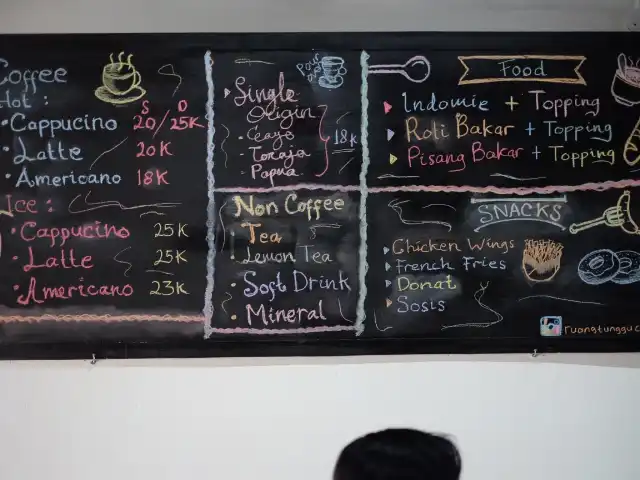 Coffee
Hot :
S D
Cappucino 20/25K
Latte 20K
Americano 18K
Ice :
Cappucino 25K
Latte 25K
Americano 23K
Single
Origin
Gayo
Toraja 18k
Papua
Non Coffee
Tea
Lemon Tea
Soft Drink
Mineral
Food
Indomie + Topping
Roti Bakar + Topping
Pisang Bakar + Topping
SNACKS
Chicken Wings
French Fries
Donat
Sosis